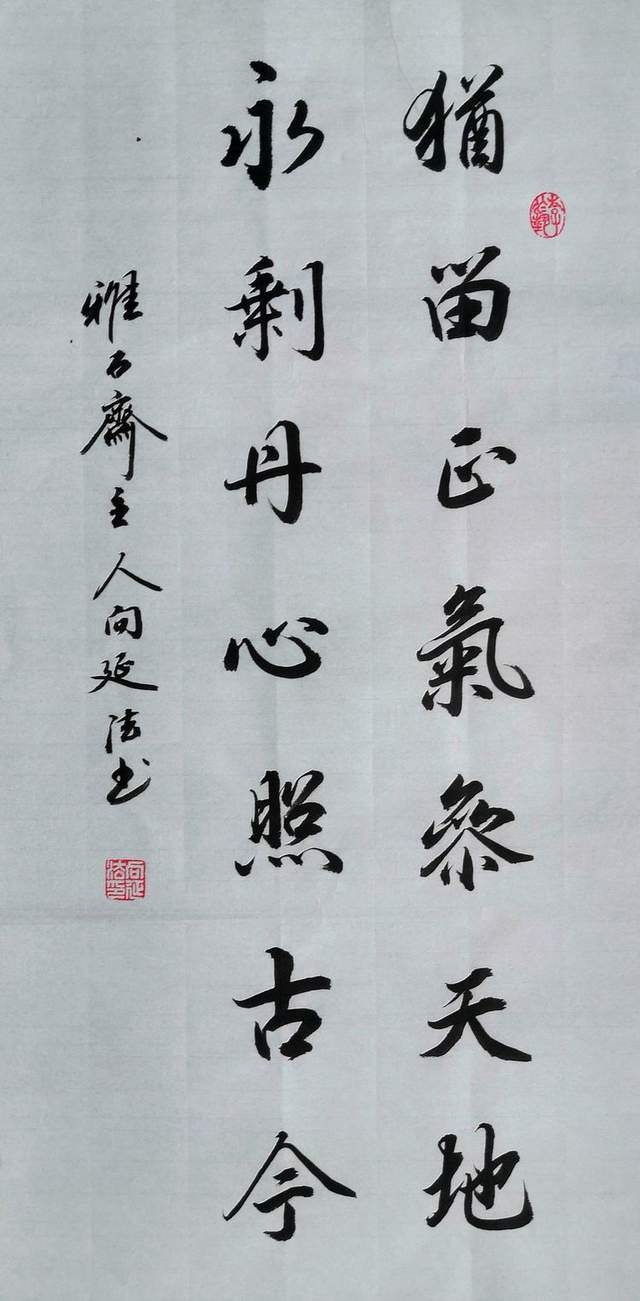 猶留正氣參天地
永剩丹心照古今
雅石齋主人向延法书
向延法印